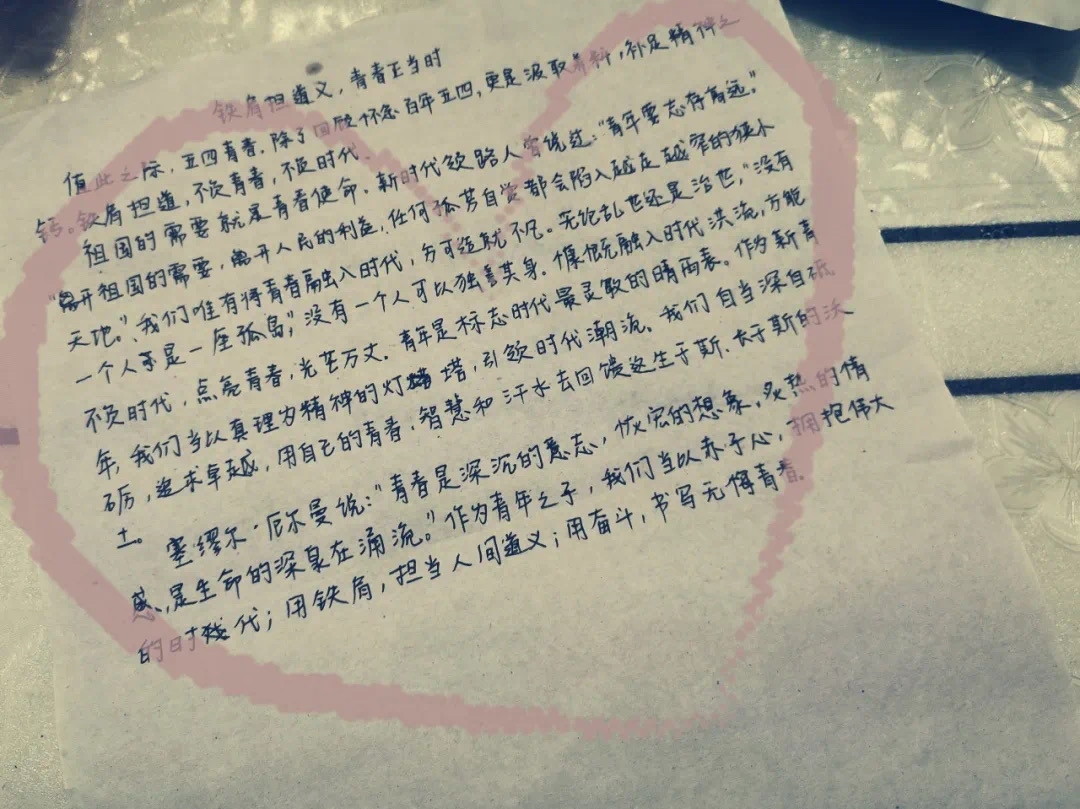 铁肩担道义，青春正当时
值此之际，五四青春，除了回顾怀念百年五四，更是汲取养料，补足精神之
钙。铁肩担道，不负青春，不负时代。
祖国的需要就是青春使命。新时代领路人曾说过："青年要志存高远。"
"离开祖国的需要，离开人民的利益，任何孤芳自赏都会陷入越走越窄的狭小
天地。"我们唯有将青春融入时代，方可造就不凡。无论乱世还是治世，"没有
一个人不是一座孤岛"，没有一个人可以独善其身。慷慨融入时代洪流，方能
不负时代，点亮青春，光芒万丈。青年是标志时代最灵敏的晴雨表。作为新青
年，我们当以真理为精神的灯塔，引领时代潮流。我们自当深自砥
砺，追求卓越，用自己的青春、智慧和汗水去回馈这生于斯、长于斯的沃
土。
塞缪尔·厄尔曼说："青春是深沉的意志，恢宏的想象，炙热的情
感，是生命的深泉在涌流。"作为青年之子，我们当以赤子心，拥抱伟大
的时代；用铁肩，担当人间道义；用奋斗，书写无悔青春。